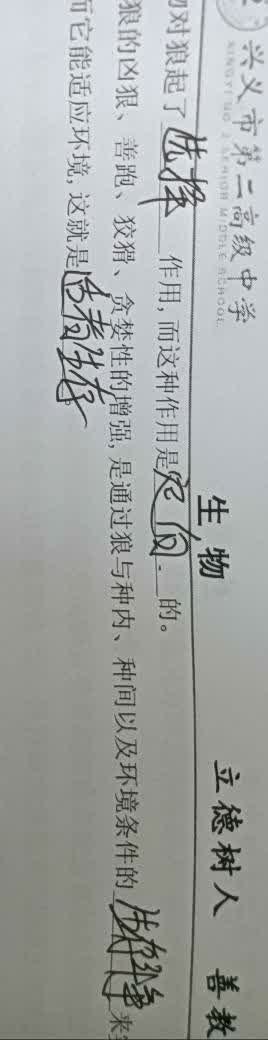 兴义市第二高级中学 生物 立德树人 善教
XINGYI NO.2 SENIOR MIDDLE SCHOOL
对狼起了选择作用,而这种作用是定向的。
狼的凶狠、善跑、狡猾、贪婪性的增强,是通过狼与种内、种间以及环境条件的生存斗争来
而它能适应环境,这就是适者生存